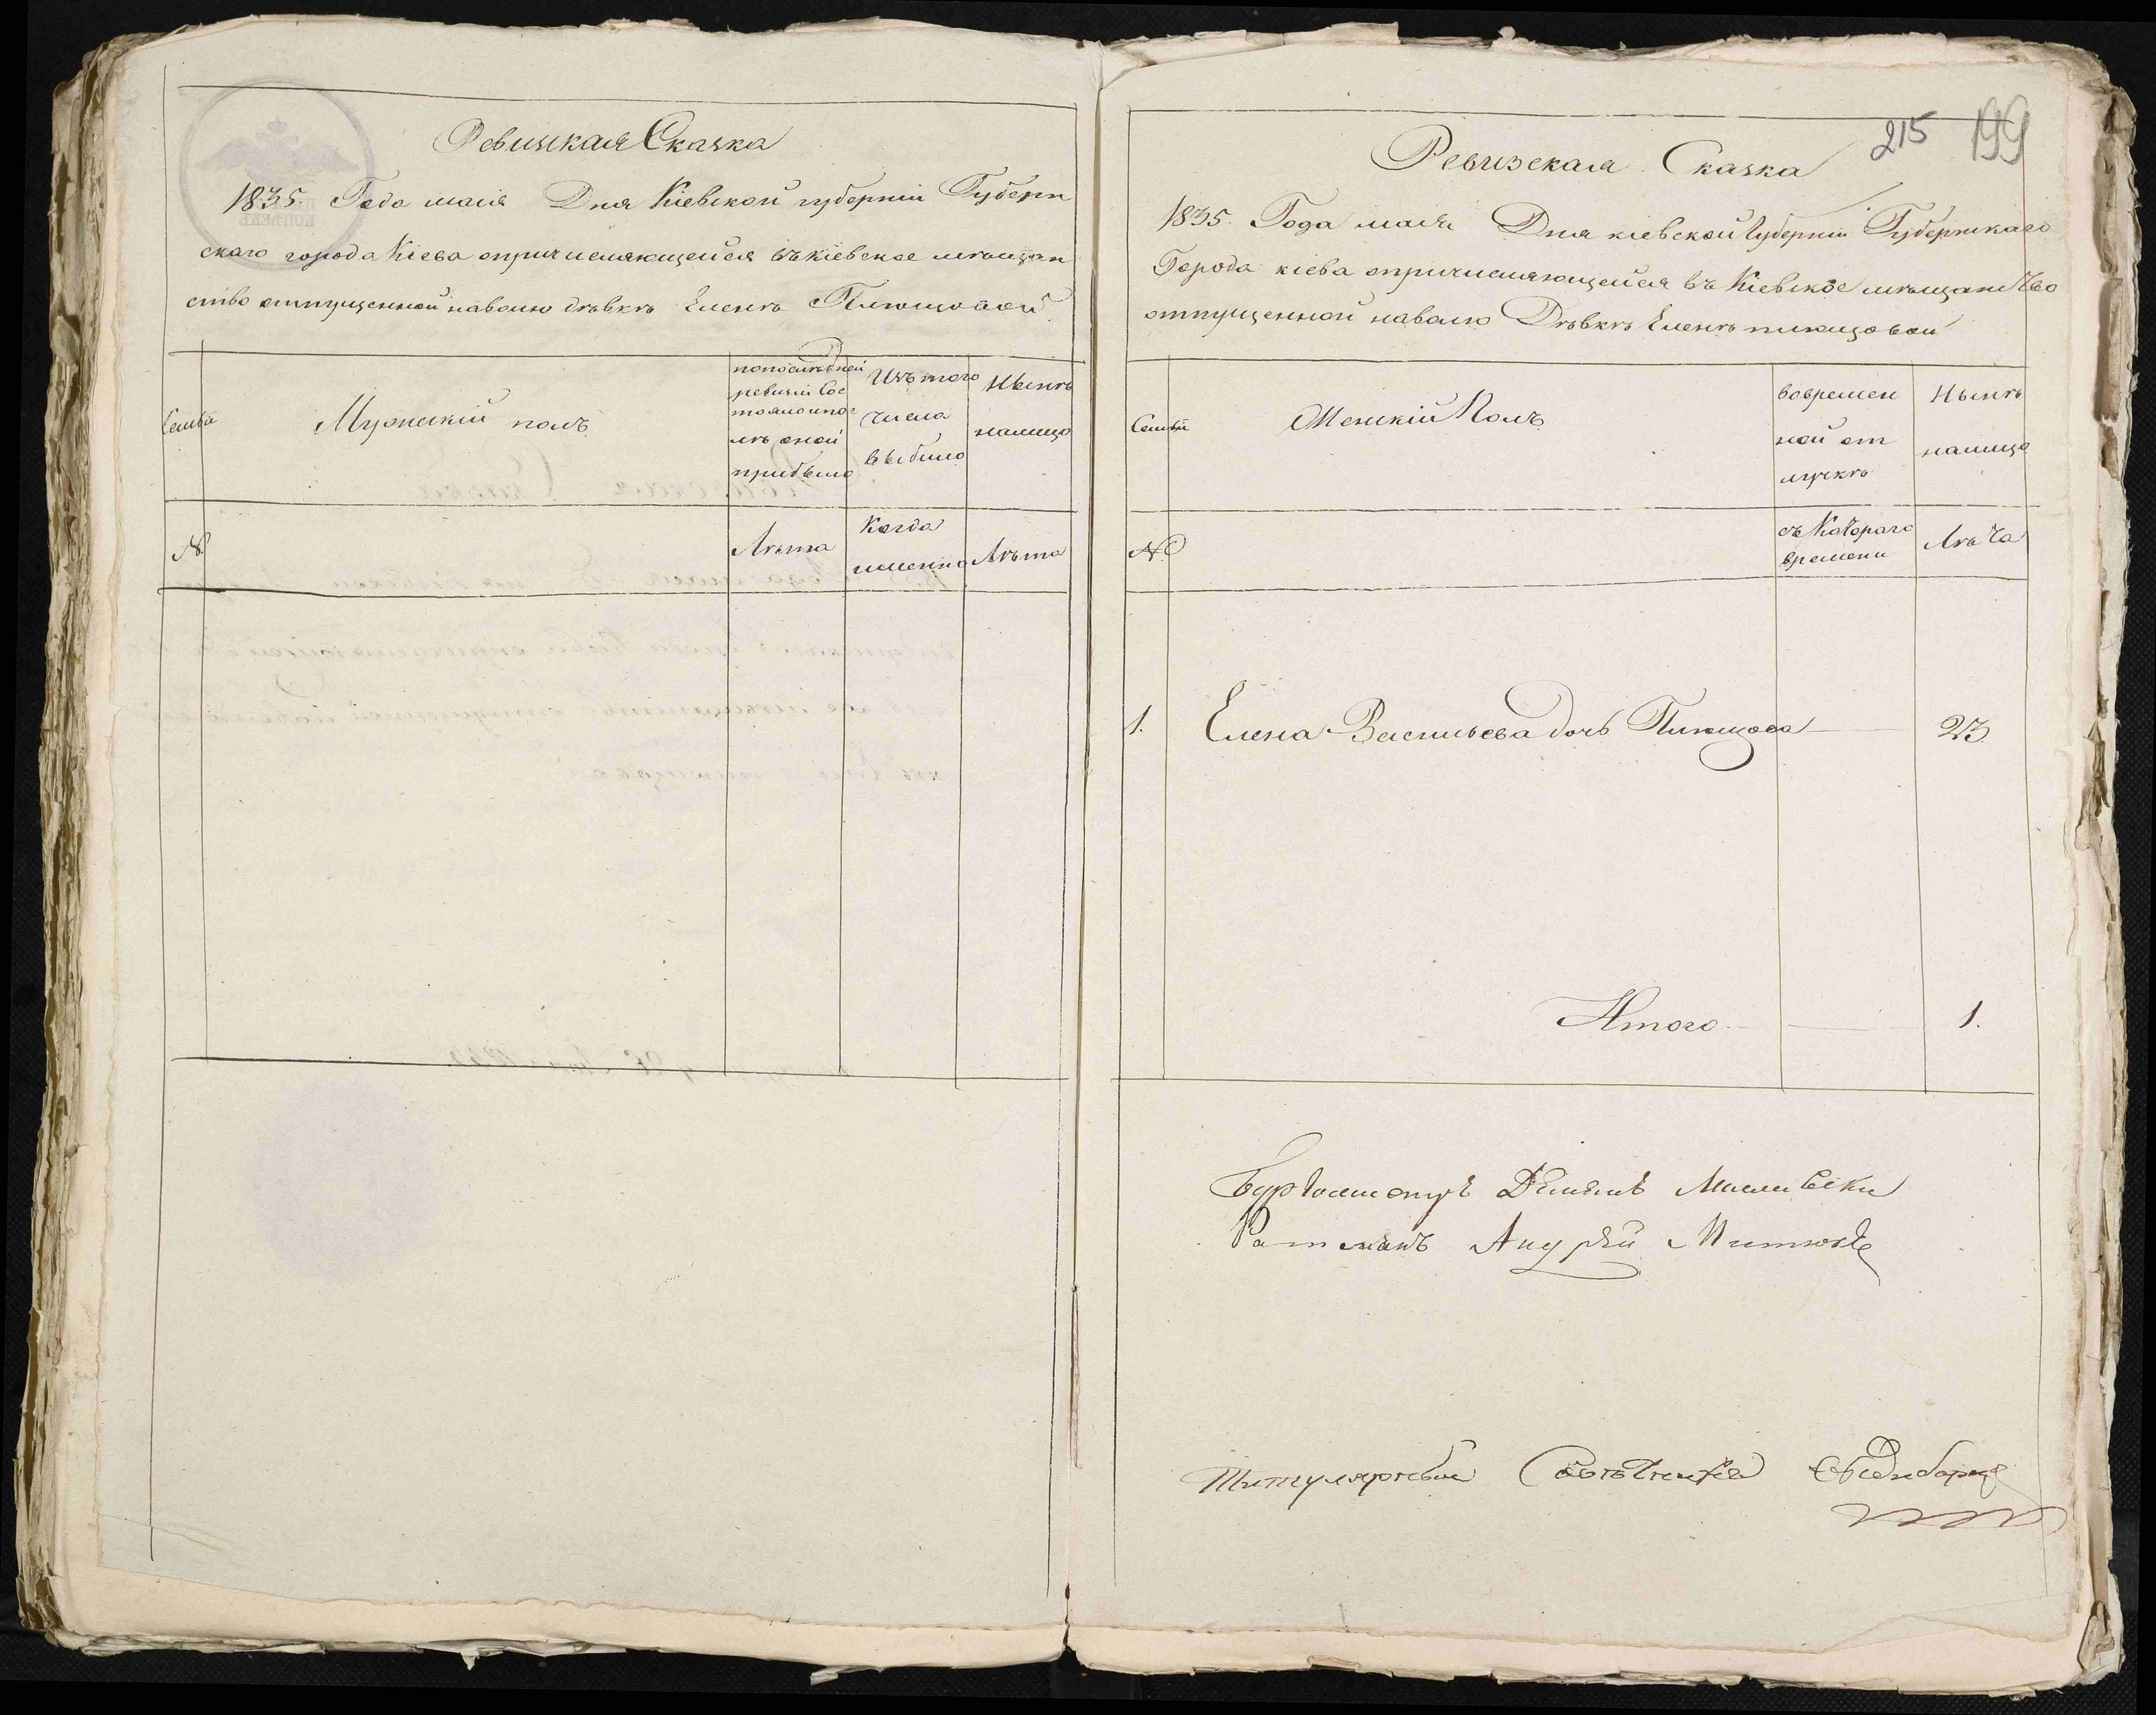 Ревизская Сказка
1835. Года маія Дня Кіевской губерніи Губерн
скаго города Кіева опричисляющейся въ кіевское мѣщан
ство отпущенной наволю дѣвкѣ Еленѣ Плющовой
Семьи
Мужескій полъ
попоследней
ревизіи Сос
тояло ипос
лѣ оной
прибыло
Изъ того
числа
выбыло
Нынѣ
налицо
№
Лѣта
Когда
именно
Лѣта
215 199
Ревизская Сказка
1835. Года маія Дня кіевской Губерніи Губернскаго
Города кіева опричисляющейся въ Кіевское мѣщанство
отпущенной наволю Дѣвкѣ Еленѣ плющовой
Семьи
Женскій Полъ
вовремен
ной от
лучкѣ
Нынѣ
налицо
№
съ Котораго
времени
Лѣта
1. Елена Васильева дочь Плющова 23.
Итого 1.
Бургомистръ Демьянъ
Ратманъ Андрей
Титулярный Советникъ